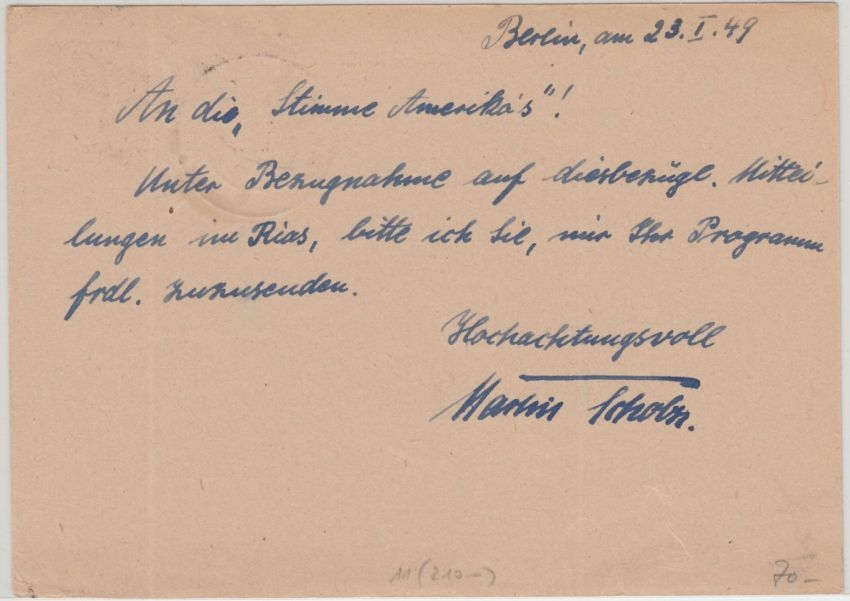 Berlin, am 23.I.49
An die „Stimme Amerika's"!
Unter Bezugnahme auf diesbezügl. Mittei-
lungen im Rias, bitte ich Sie, mir Ihr Programm
frdl. zuzusenden.
Hochachtungsvoll
Martin Scholz.
11 (210.-) 70-